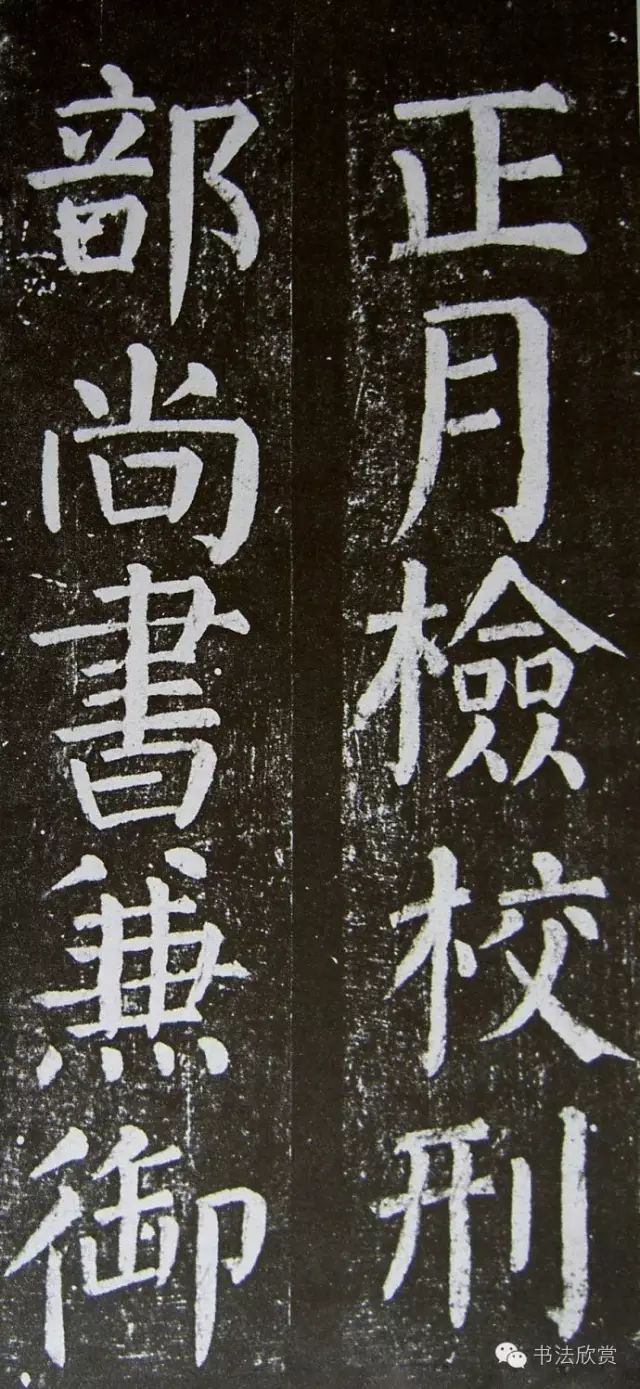 正月檢校刑
部尚書兼御
书法欣赏